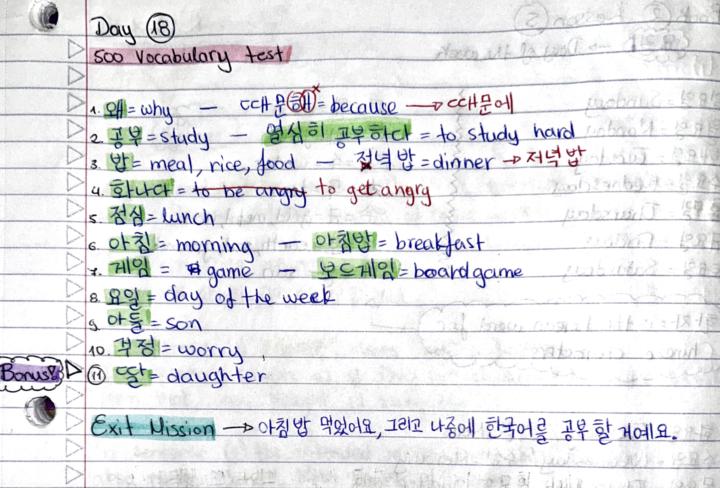 Day 18
500 Vocabulary test
1. 왜 = why — 때문해 x = because → 때문에
2. 공부 = study — 열심히 공부하다 = to study hard
3. 밥 = meal, rice, food — 젹녁밥 = dinner → 저녁밥
4. 화나다 = to be angry to get angry
5. 점심 = lunch
6. 아침 = morning — 아침밥 = breakfast
7. 게임 = game — 보드게임 = boardgame
8. 요일 = day of the week
9. 아들 = son
10. 걱정 = worry
Bonus 11 딸 = daughter
Exit Mission → 아침밥 먹었어요, 그리고 나중에 한국어를 공부할 거예요.